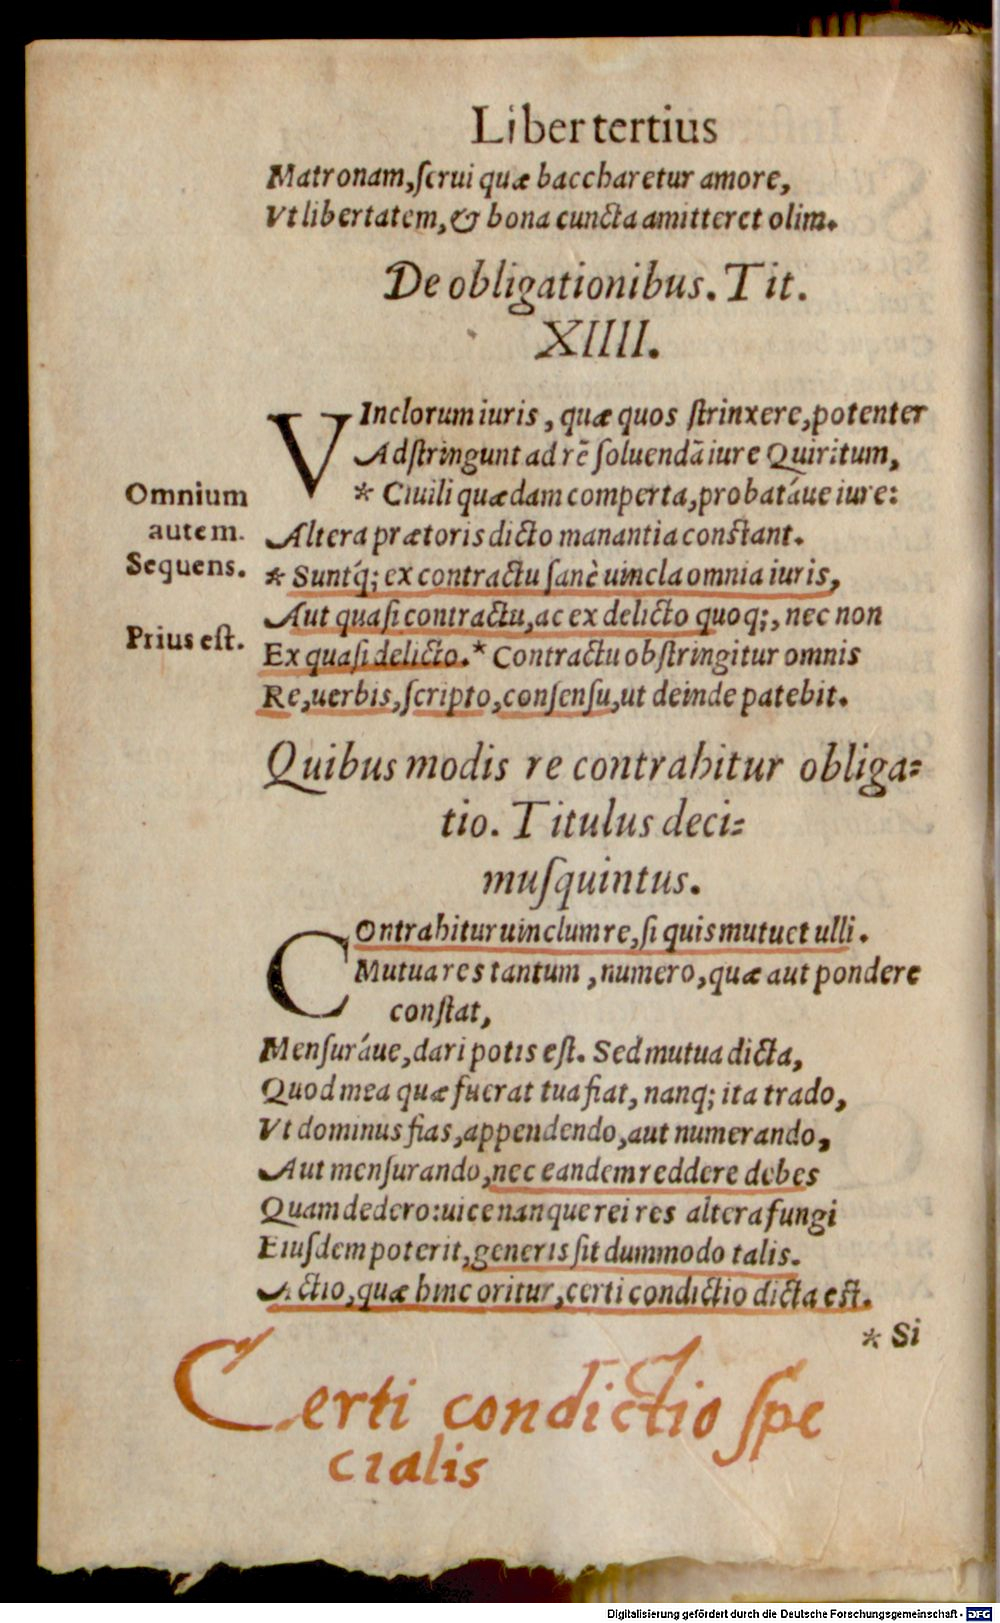 Liber tertius
Matronam, ſerui quæ baccharetur amore,
Vt libertatem, & bona cuncta amitteret olim.
De obligationibus. Tit.
XIIII.
VInclorum iuris, quæ quos ſtrinxere, potenter
Adſtringunt ad rē ſoluendā iure Quiritum,
* Ciuili quædam comperta, probatáue iure:
Altera prætoris dicto manantia constant.
* Suntq́; ex contractu ſanè uincla omnia iuris,
Aut quaſi contractu, ac ex delicto quoq;, nec non
Ex quaſi delicto.* Contractu obſtringitur omnis
Re, uerbis, ſcripto, conſenſu, ut deinde patebit.
Omnium
autem.
Sequens.
Prius eſt.
Quibus modis re contrahitur obliga=
tio. Titulus deci=
muſquintus.
COntrahitur uinclum re, ſi quis mutuet ulli.
Mutua res tantum, numero, quæ aut pondere
conſtat,
Menſuráue, dari potis eſt. Sed mutua dicta,
Quod mea quæ fuerat tua fiat, nanq; ita trado,
Vt dominus fias, appendendo, aut numerando,
Aut menſurando, nec eandem reddere debes
Quam dedero: uice nanque rei res altera fungi
Eiuſdem poterit, generis ſit dummodo talis.
Actio, quæ hinc oritur, certi condictio dicta eſt.
* Si
Certi condictio ſpe
cialis
Digitalisierung gefördert durch die Deutsche Forschungsgemeinschaft - DFG